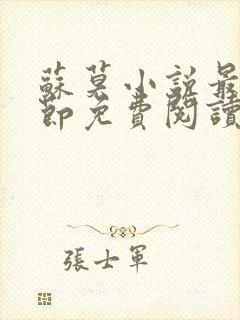 蘇莫小説最
節免費閱讀
張士軍